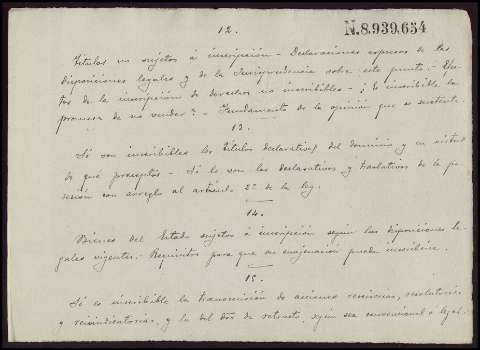 12.
N.8.939.654
Títulos no sujetos á inscripción - Declaraciones expresas de las
disposiciones legales y de la Jurisprudencia sobre este punto. - Efec-
tos de la inscripción de derechos no inscribibles - ¿Es inscribible la
promesa de no vender? - Fundamento de la opinión que se sustente.
13.
Si son inscribibles los títulos declarativos del dominio y en virtud
de qué preceptos - Si lo son los declarativos y traslativos de la po-
sesión con arreglo al artículo 2º de la ley.
14.
Bienes del Estado sujetos á inscripción según las disposiciones le-
gales vigentes. - Requisitos para que su enajenación pueda inscribirse.
15.
Si es inscribible la transmisión de acciones rescisorias, resolutorias
y reivindicatorias, y la del dro de retracto, según sea convencional ó legal.